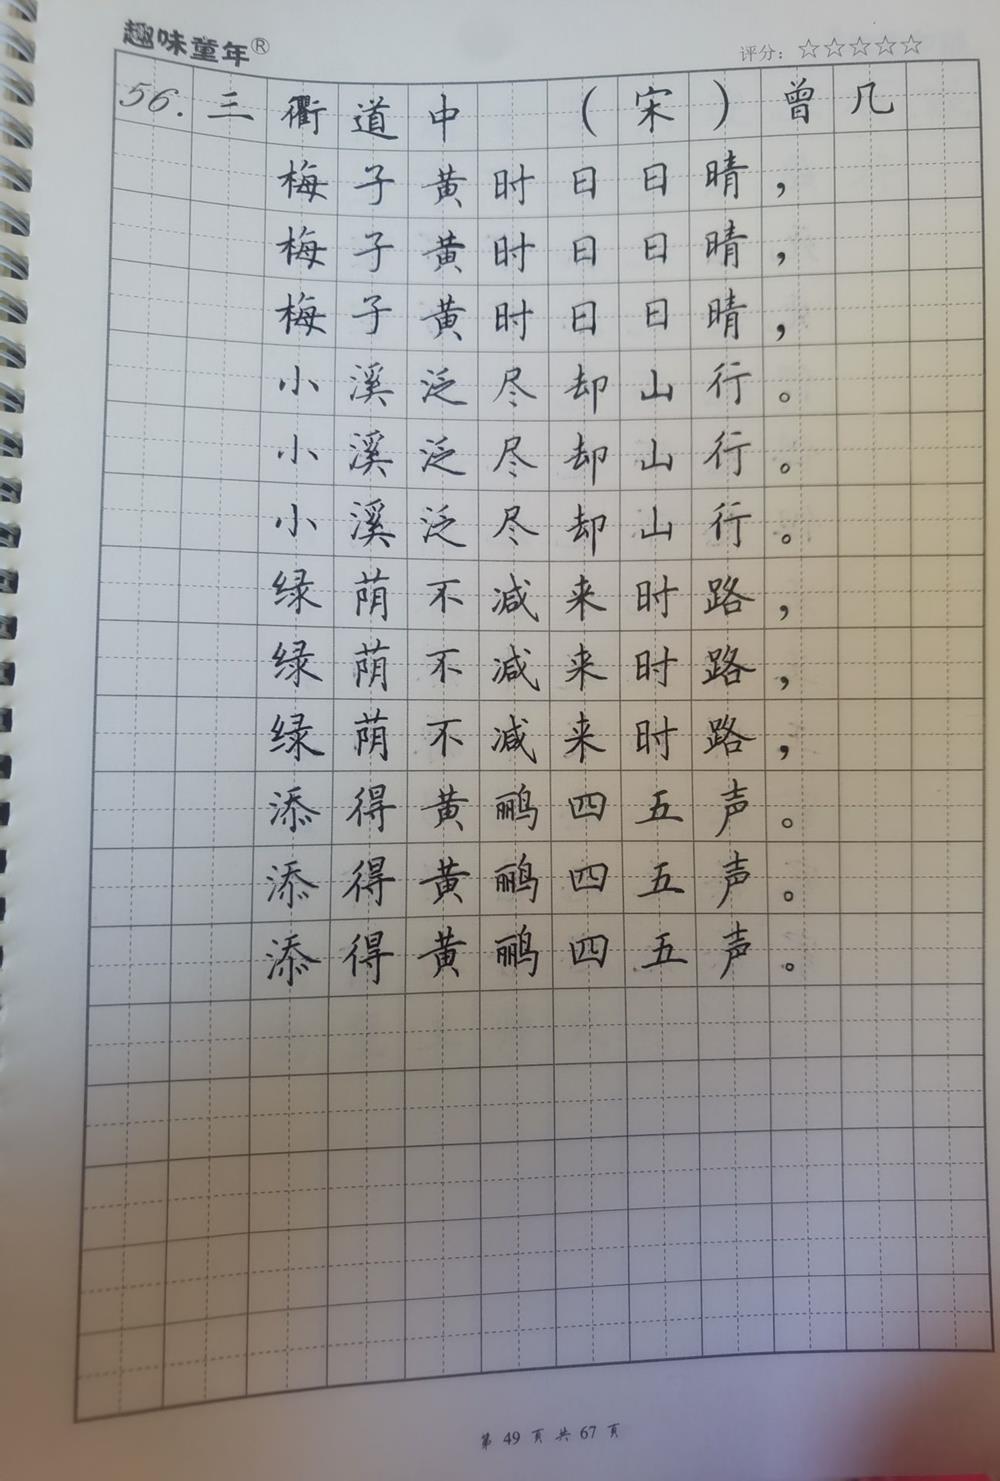 趣味童年®
评分：☆☆☆☆☆
56. 三衢道中 （宋）曾几
梅子黄时日日晴，
梅子黄时日日晴，
梅子黄时日日晴，
小溪泛尽却山行。
小溪泛尽却山行。
小溪泛尽却山行。
绿荫不减来时路，
绿荫不减来时路，
绿荫不减来时路，
添得黄鹂四五声。
添得黄鹂四五声。
添得黄鹂四五声。
第 49 页 共 67 页